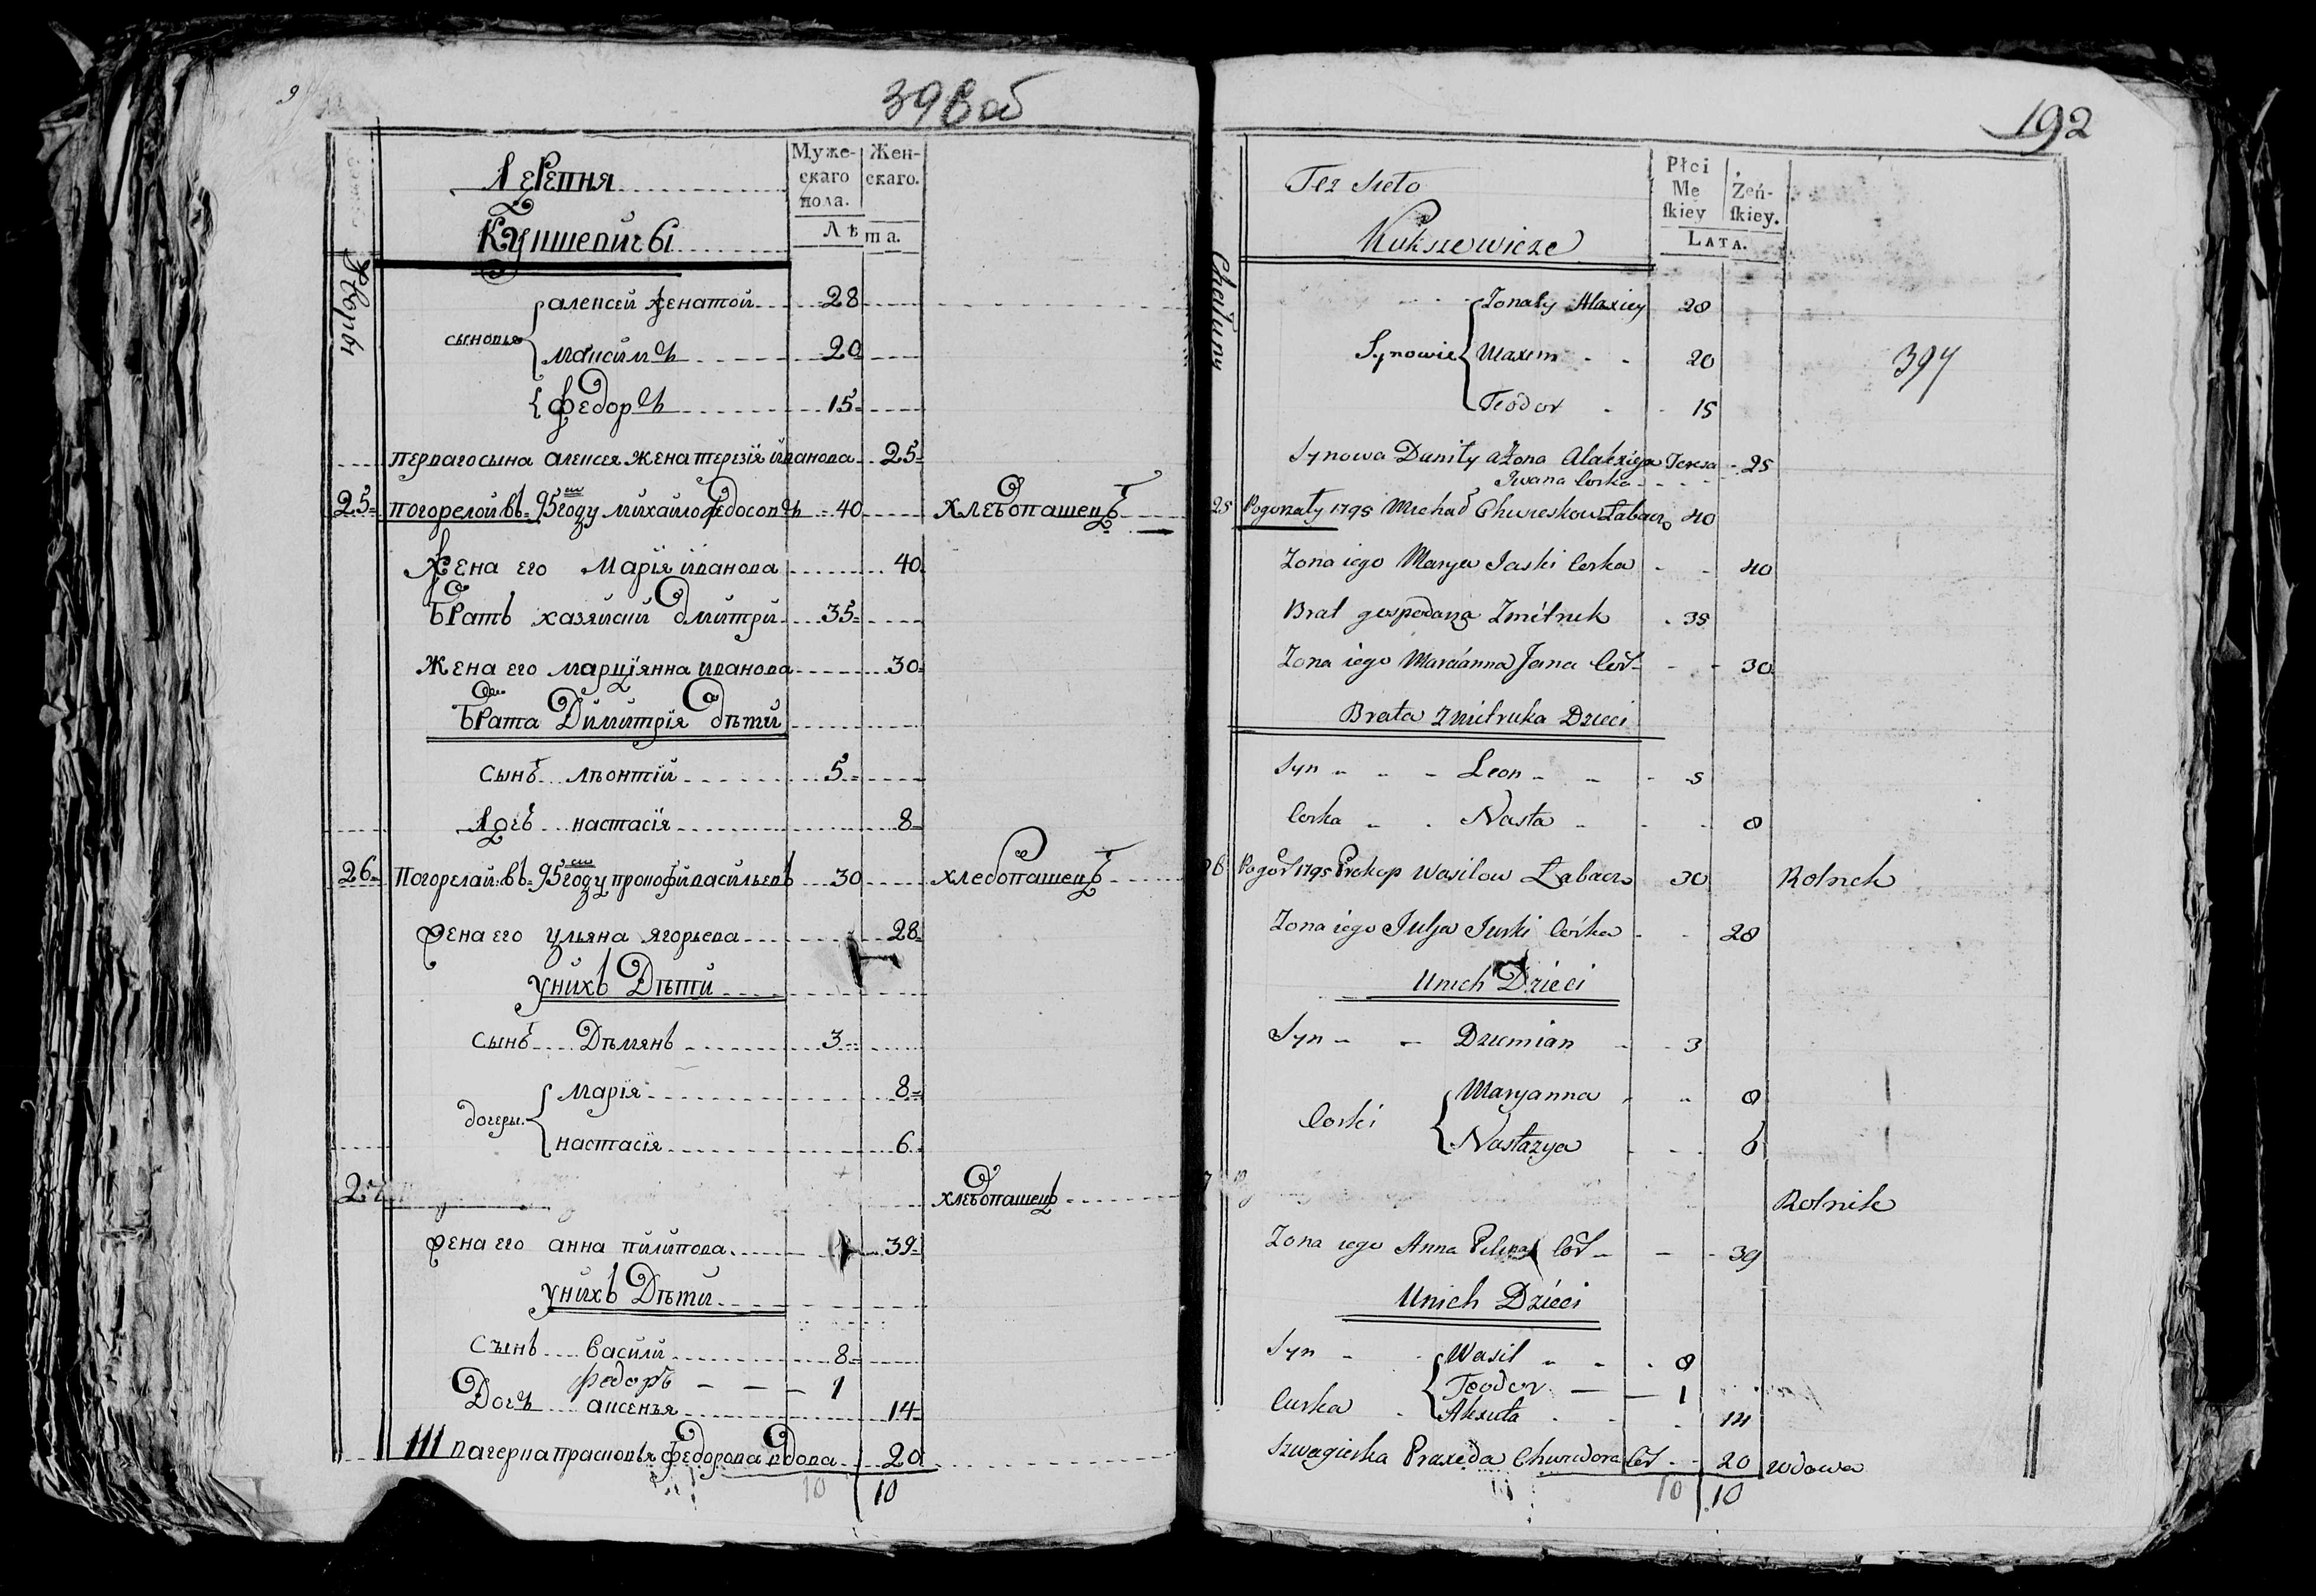 396 об
Деревня
Кукшевичы
Муже-
скаго
пола.
Жен-
скаго.
Лѣта.
сыновья
алексей женатой 28
максимъ 20
федоръ 15
перваго сына алексея жена терезія иванова 25
25 погорелой въ 95 году михайло федосовъ 40 хлебопашецъ
жена его марія иванова 40
братъ хазяиский дмитри 35
жена его марціянна иванова 30
брата Димитрія дѣти
сынъ лѣонтій 5
дочь настасія 8
26 погорелай въ 95 году прокофи васильевъ 30 хлебопашецъ
жена его ульяна ягорьева 28
у нихъ Дѣти
сынъ Дѣмянъ 3
дочеры
марія 8
настасія 6
27 хлебопашецъ
жена его анна пилипова 39
у нихъ Дѣти
сынъ василий 8
федоръ 1
Дочъ аксенья 14
прасковья федорова вдова 20
10 10
192
Też
Kukszewicze
Płci
Mę
ſkiey
Żeń-
ſkiey.
LATA.
Synowie
Żonaty Alaxiey 28
Maxim 20
Teodor 15
397
Synowa Daniły a Żona Alaxieja Teresa 25
Iwana Corka
25 Pogorzały 1795 Michał Łabacz 40
Zona iego Marya Jaski Corka 40
Brat gospodarza Zmitruk 35
Zona iego Maráanna Jana Cor 30
Brata Zmitruka Dzieci
Syn Leon 5
Corka Nasta 8
26 Pogor 1795 Prokop Wasilow Łabacz 30 Rolnik
Zona iego Julja Jurki Córka 28
U nich Dzieci
Syn Dziemian 3
Corki
Maryanna 8
Nastazya 6
Rolnik
Zona iego Anna Pilipa Cor 39
U nich Dzieci
Syn Wasil 8
Teodor 1
Curka Akxuta 14
Szwagierka Praxeda Chwiedora Cor 20 wdowa
10 10